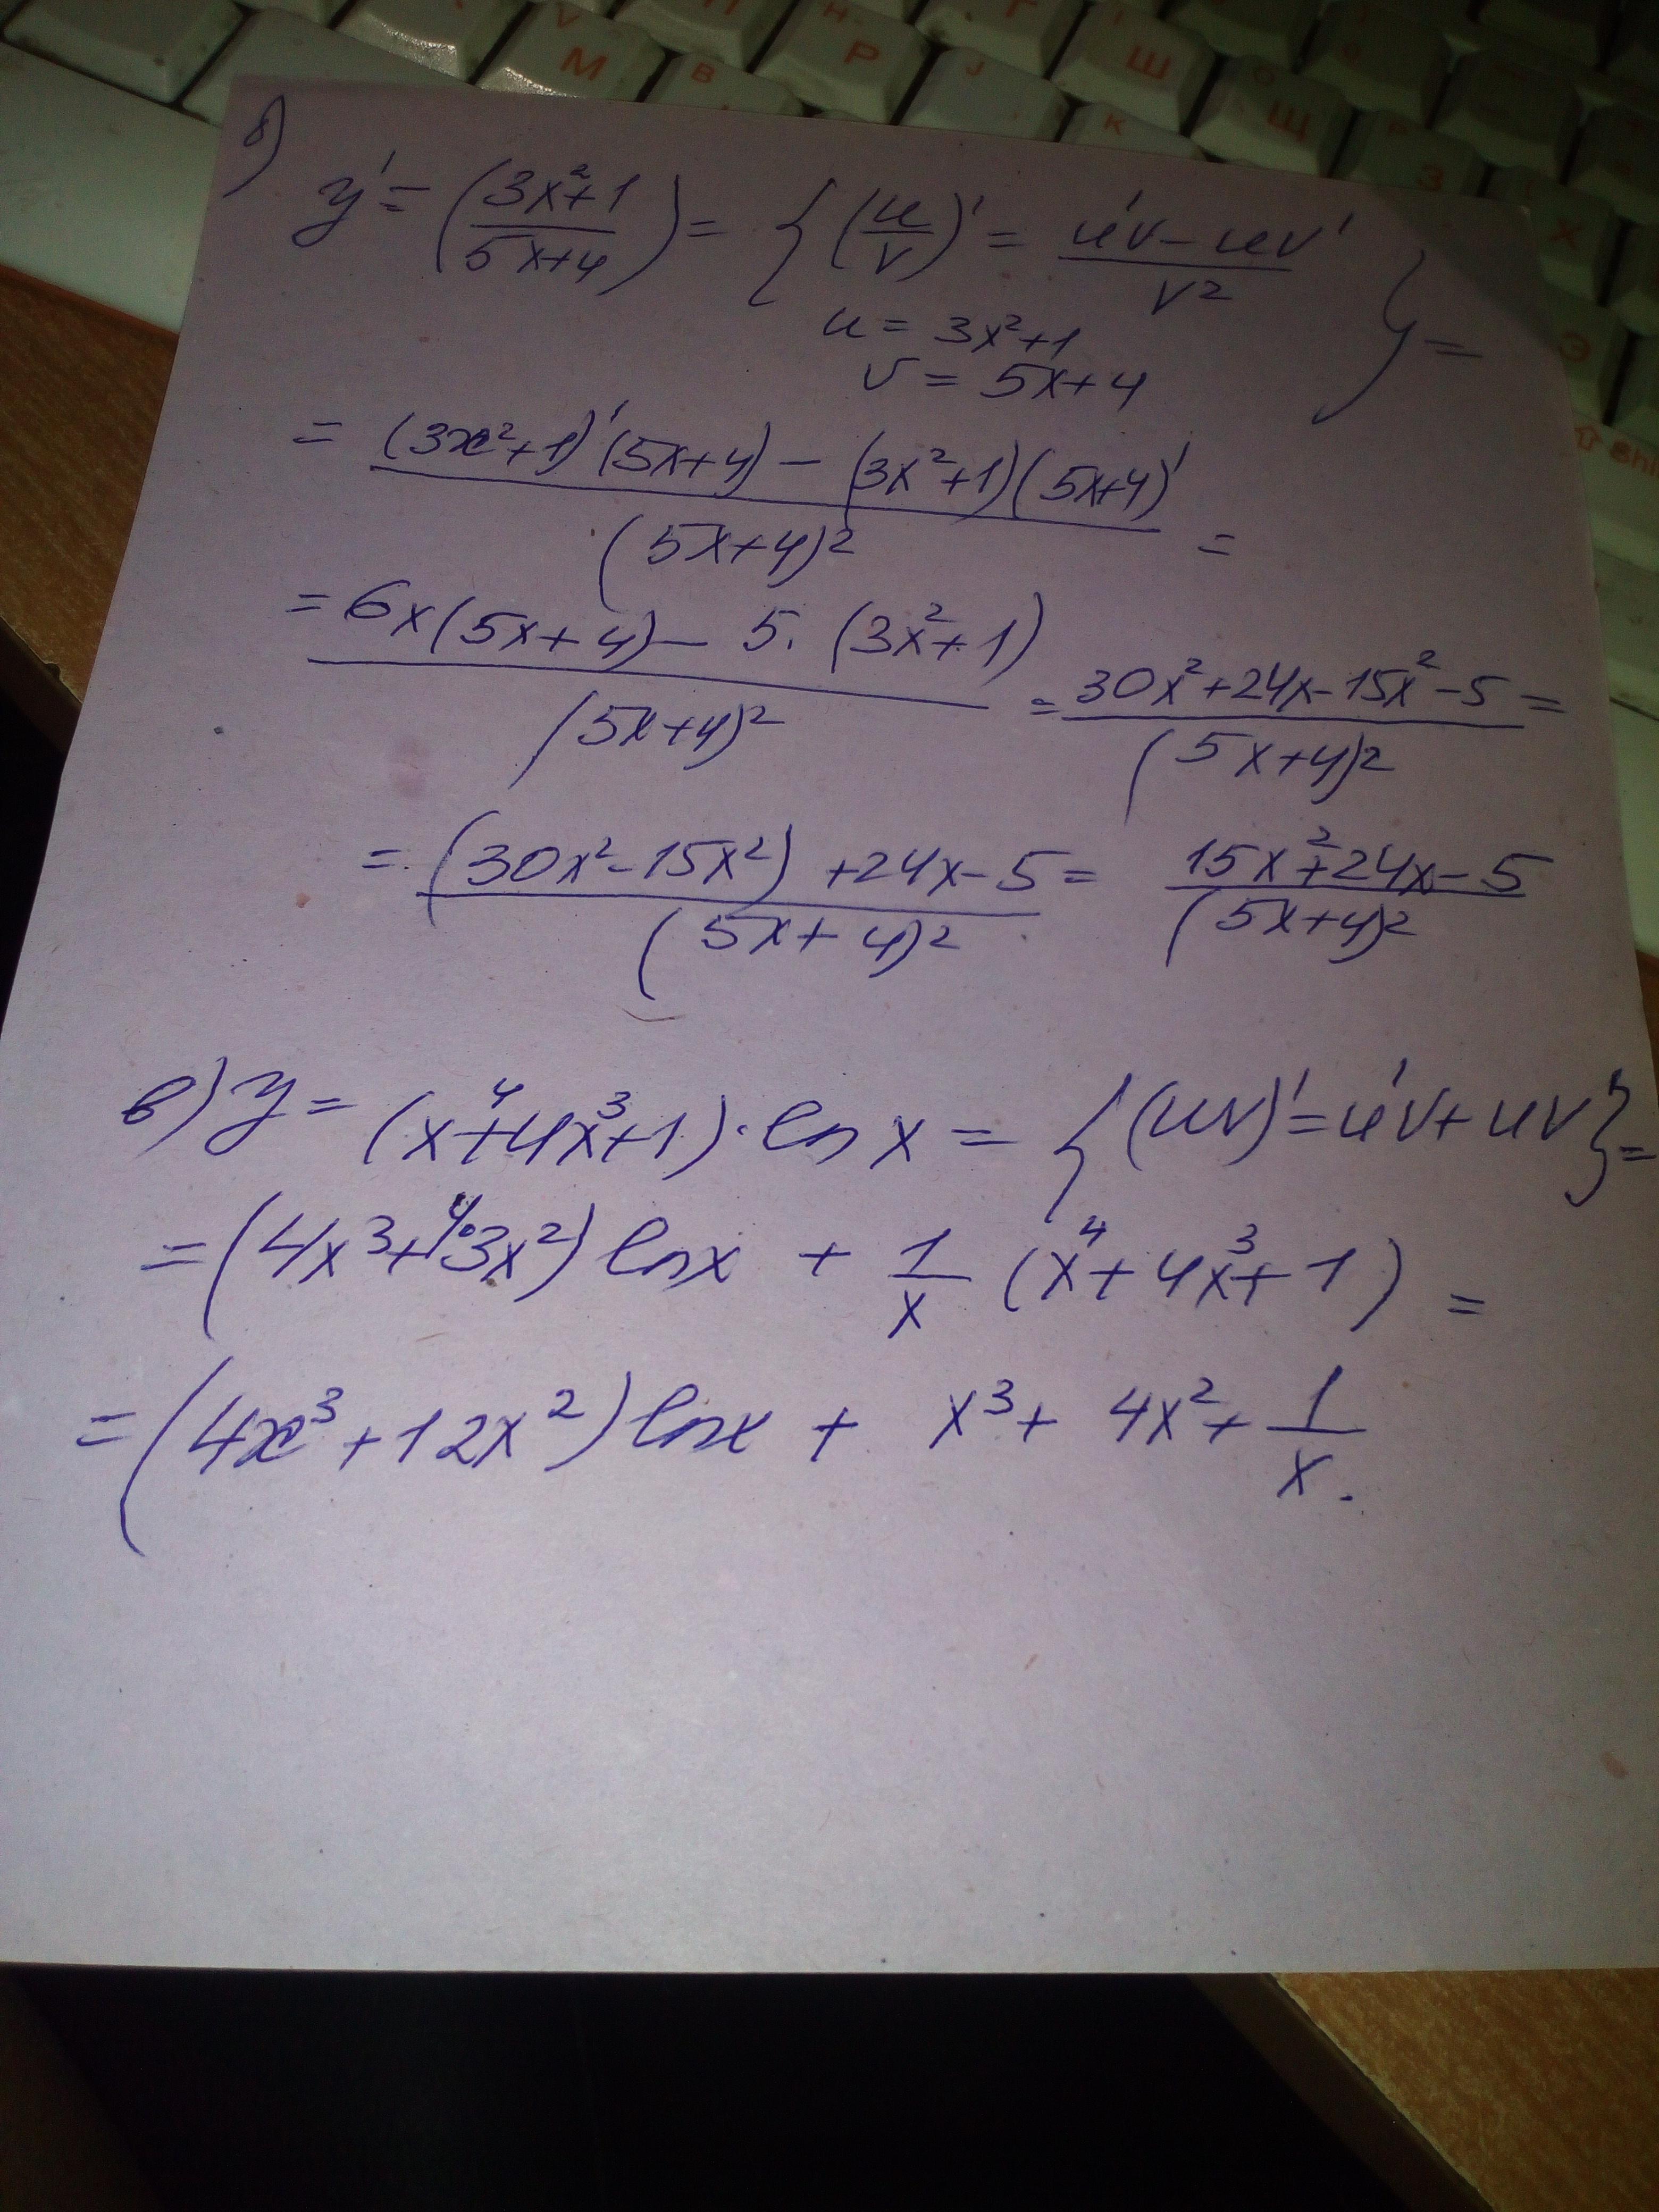 V М В Н Р J Г Ш O Щ К З Х Э
⇧ Shi
б) y' = (3x²+1 / 5x+4) = { (u/v)' = u'v - uv' / v²
u = 3x²+1
v = 5x+4 } =
= (3x²+1)'(5x+4) - (3x²+1)(5x+4)' / (5x+4)² =
= 6x(5x+4) - 5·(3x²+1) / (5x+4)² = 30x²+24x-15x²-5 / (5x+4)² =
= (30x²-15x²)+24x-5 / (5x+4)² = 15x²+24x-5 / (5x+4)²
в) y = (x⁴+4x³+1)·ln x = { (uv)' = u'v + uv' } =
= (4x³+4·3x²) ln x + 1/x (x⁴+4x³+1) =
= (4x³+12x²) ln x + x³ + 4x² + 1/x.